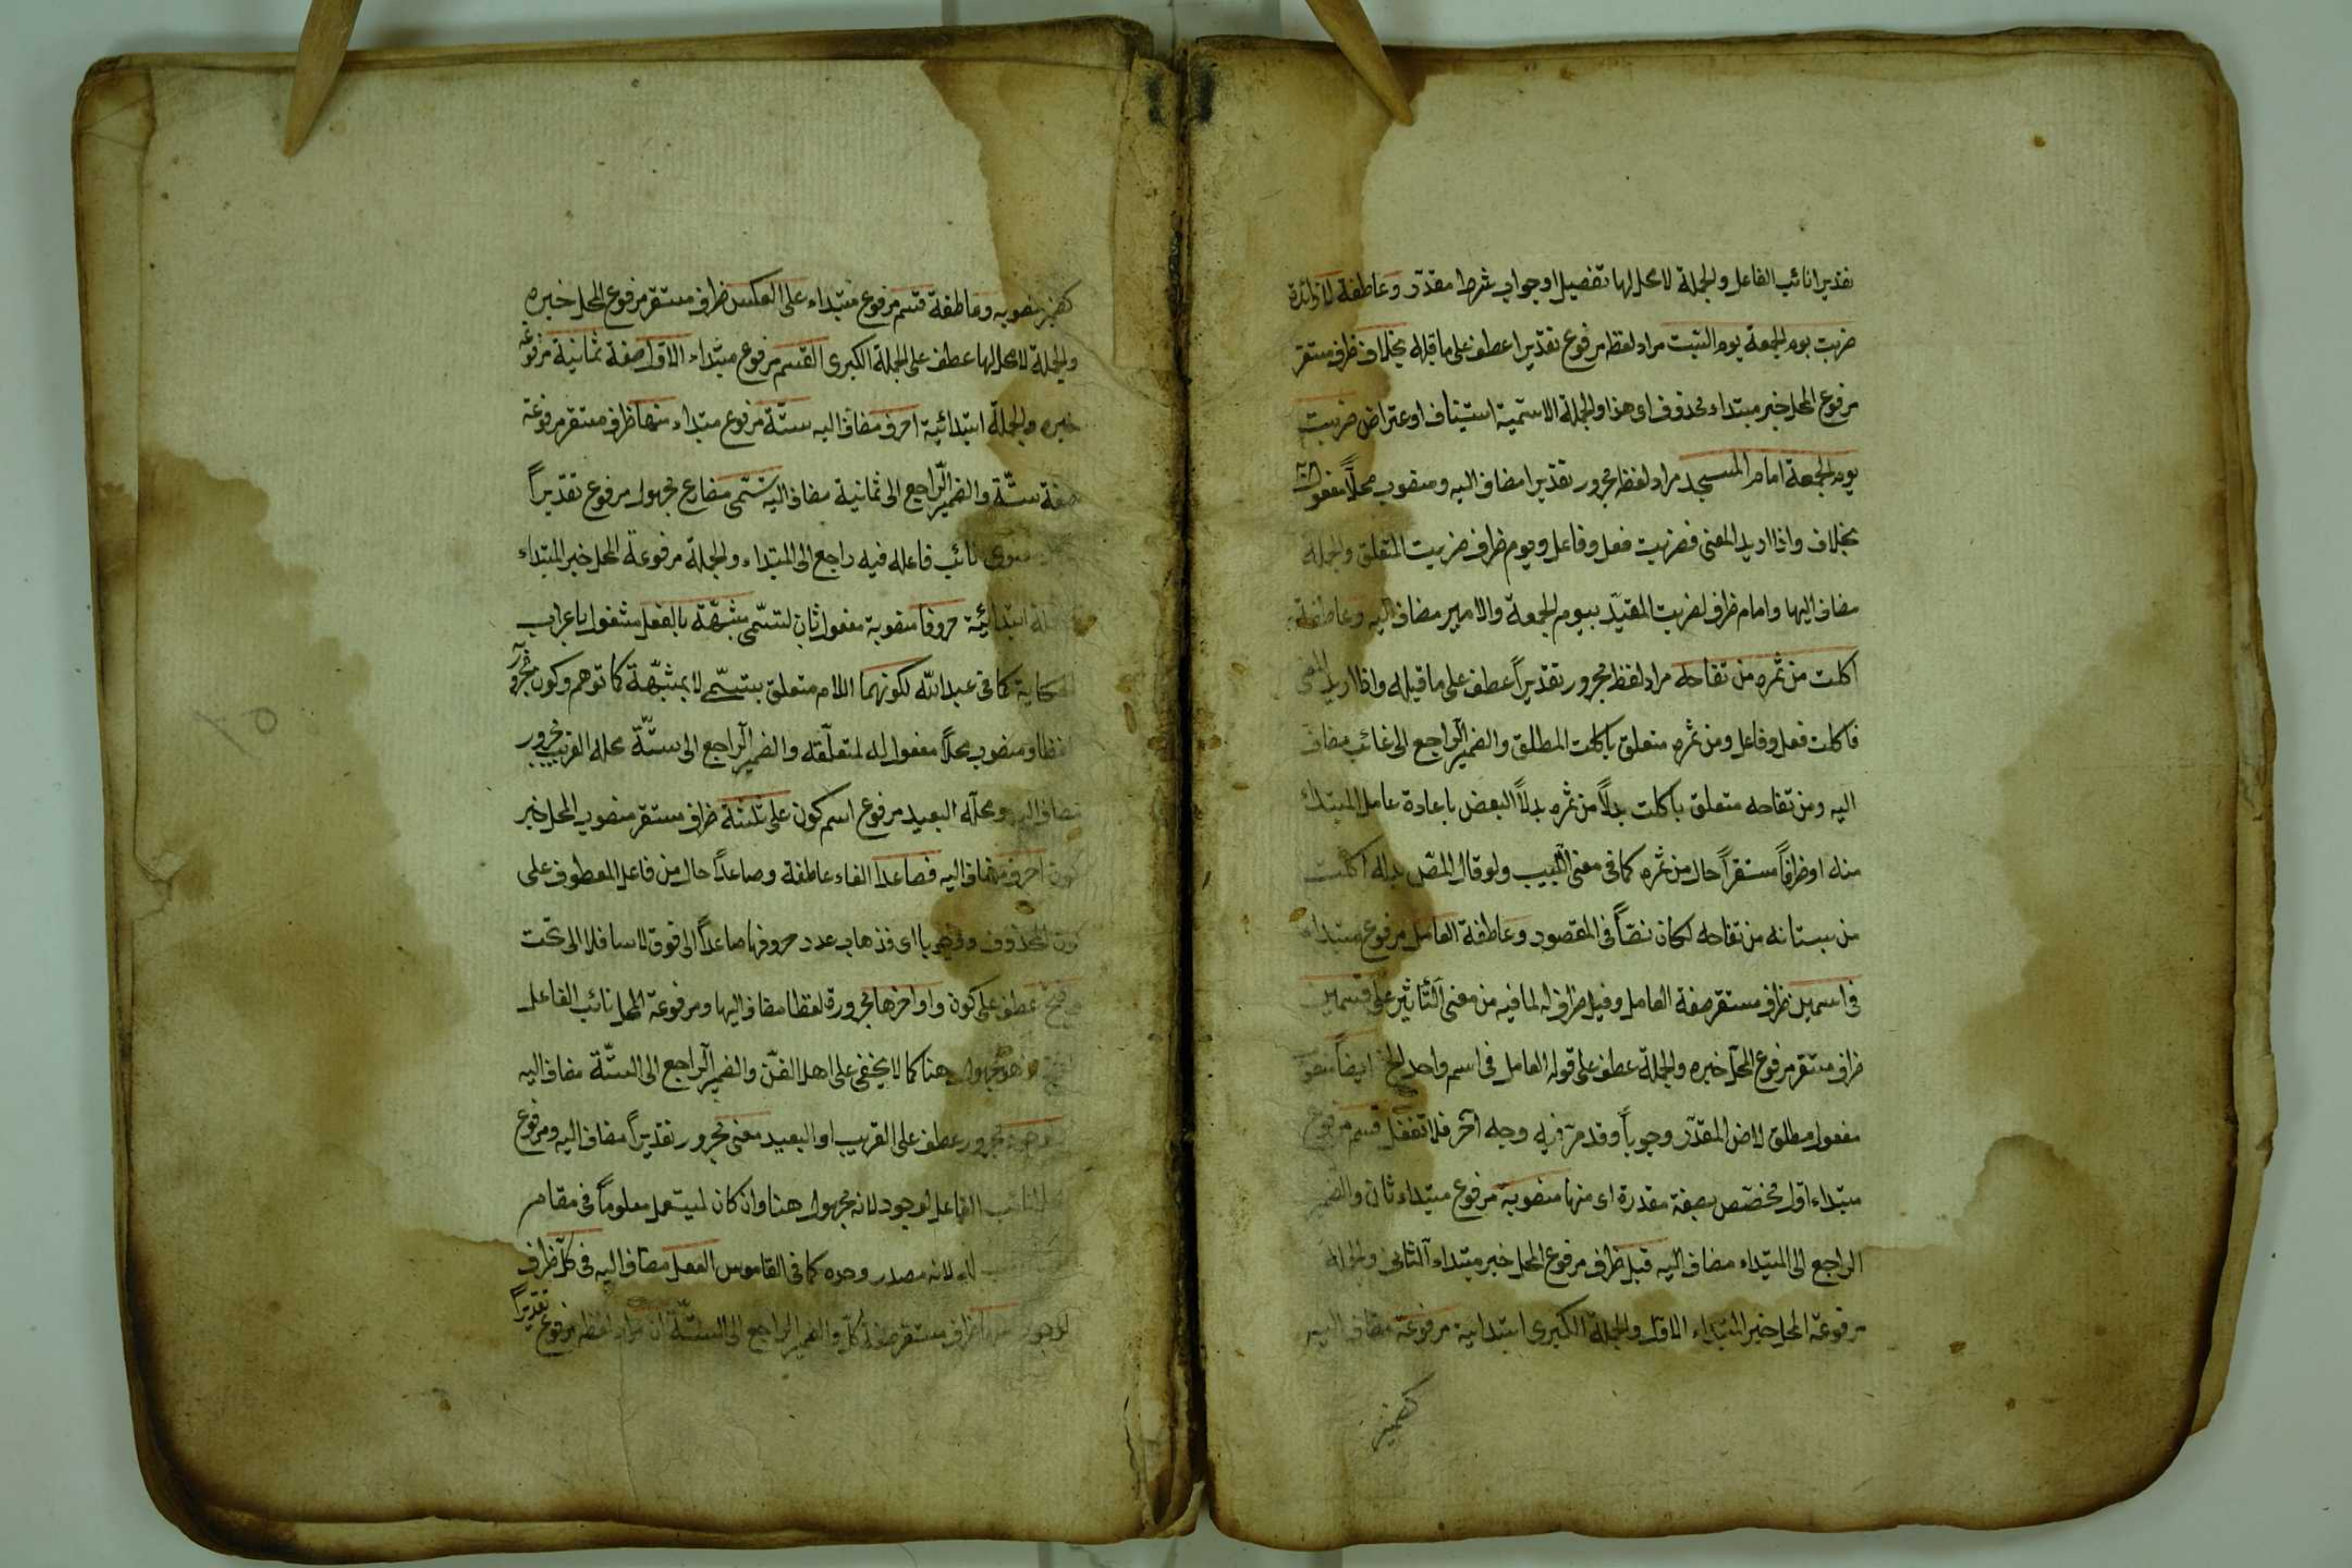 تقديرا نائب الفاعل والجملة لا محل لها تفصيل او جواب شرط مقدر وعاطفة لا زائدة
ضربت يوم الجمعة يوم السبت مراد لفظه مرفوع تقديرا عطف على ما قبله بخلاف ظرف مستقر
مرفوع المحل خبر مبتداء محذوف اى هذا والجملة الاسمية استيناف او عتراض ضربت
يوم الجمعة امام المسجد مراد لفظه مجرور تقديرا مضاف اليه ومنصوب محلاً مفعول
بخلاف واذا اريد المعنى فضربت فعل وفاعل ويوم ظرف ضربت المتعلق والجملة
مضاف اليها وامام ظرف لضربت المقيّد بيوم الجمعة والامير مضاف اليه وعاطفة
اكلت من ثمره من تفاحه مراد لفظه مجرور تقديراً عطف على ما قبله واذا اريد المعنى
فاكلت فعل وفاعل ومن ثمره متعلق باكلت المطلق والضمير الراجع الى غائب مضاف
اليه ومن تفاحه متعلق باكلت بدلاً من ثمره بدلاً البعض باعادة عامل المبتداء
منه او ظرفاً مستقراً حال من ثمره كما فى معنى اللبيب ولو قال المصّ بدله اكلت
من بستانه من تفاحه لكان نصّاً فى المقصود وعاطفة العامل مرفوع مبتداء
فى اسمين ظرف مستقر صفة العامل وقيل ظرف له لما فيه من معنى التّأثير على قسمين
ظرف مستقر مرفوع المحلّ خبره والجملة عطف على قوله العامل فى اسم واحد الخ ايضاً منصو
مفعول مطلق لاض المقدّر وجوباً وقد مرّ فيه وجه آخر فلا تغفل قسم مرفوع
مبتداء اول مخصّص بصفة مقدرة اى منها منصوبه مرفوع مبتداء ثان والضمير
الراجع الى المبتداء مضاف اليه قبل ظرف مرفوع المحل خبر مبتداء الثانى والجملة
مرفوعة المحل خبر المبتداء الاول والجملة الكبرى ابتدائية مرفوعه مضاف اليه
كضمير
كضمير منصوبه وعاطفة قسم مرفوع مبتداء على العكس ظرف مستقر مرفوع المحل خبره
والجملة لا محل لها عطف على الجملة الكبرى القسم مرفوع مبتداء الاول صفة ثمانية مرفوعه
خبره والجملة ابتدائية احرف مضاف اليه ستّة مرفوع مبتداء منها ظرف مستقر مرفوعة
صفة ستّة والضمير الراجع الى ثمانية مضاف اليه تسّمى مضارع مجهول مرفوع تقديراً
نائب فاعله فيه راجع الى المبتداء والجملة مرفوعة المحل خبر المبتداء
ابتدائية حروفا منصوبة مفعول ثان لتسّمى مشبّهة بالفعل مشغول باعراب
الحكاية كما فى عبد الله لكونهما اللام متعلق بتسمى لا بمشبّهة كما توهم وكون مجرور
لفظا ومنصوب محلاً مفعول له لمتعلّقه والضمير الراجع الى ستّة محله القريب مجرور
مضاف اليه ومحله البعيد مرفوع اسم كون على ثلثة ظرف مستقر منصوب المحل خبر
كون احرف مضاف اليه فصاعدا الفاء عاطفة وصاعداً حال من فاعل المعطوف على
كون المحذوف وجوبا اى فذهاب عدد حروفها صاعداً الى فوق لا سافلا الى تحت
وفتح عطف على كون واواخرها مجرورة لفظا مضاف اليها ومرفوعة المحل نائب الفاعل
مجهول هنا كما لا يخفى على اهل الفنّ والضمير الراجع الى الستّة مضاف اليه
مجرور عطف على القريب او البعيد معنى مجرور تقديراً مضاف اليه ومرفوع
الفاعل لوجود لانه مجهول هنا وان كان ليستعمل معلوماً فى مقام
لانه مصدر وجده كما فى القاموس الفعل مضاف اليه فى كلّ ظرف
لوجود ظرف مستقر صفة كلّ والضمير الراجع الى الستّة ان مراد لفظه مرفوع تقديراً